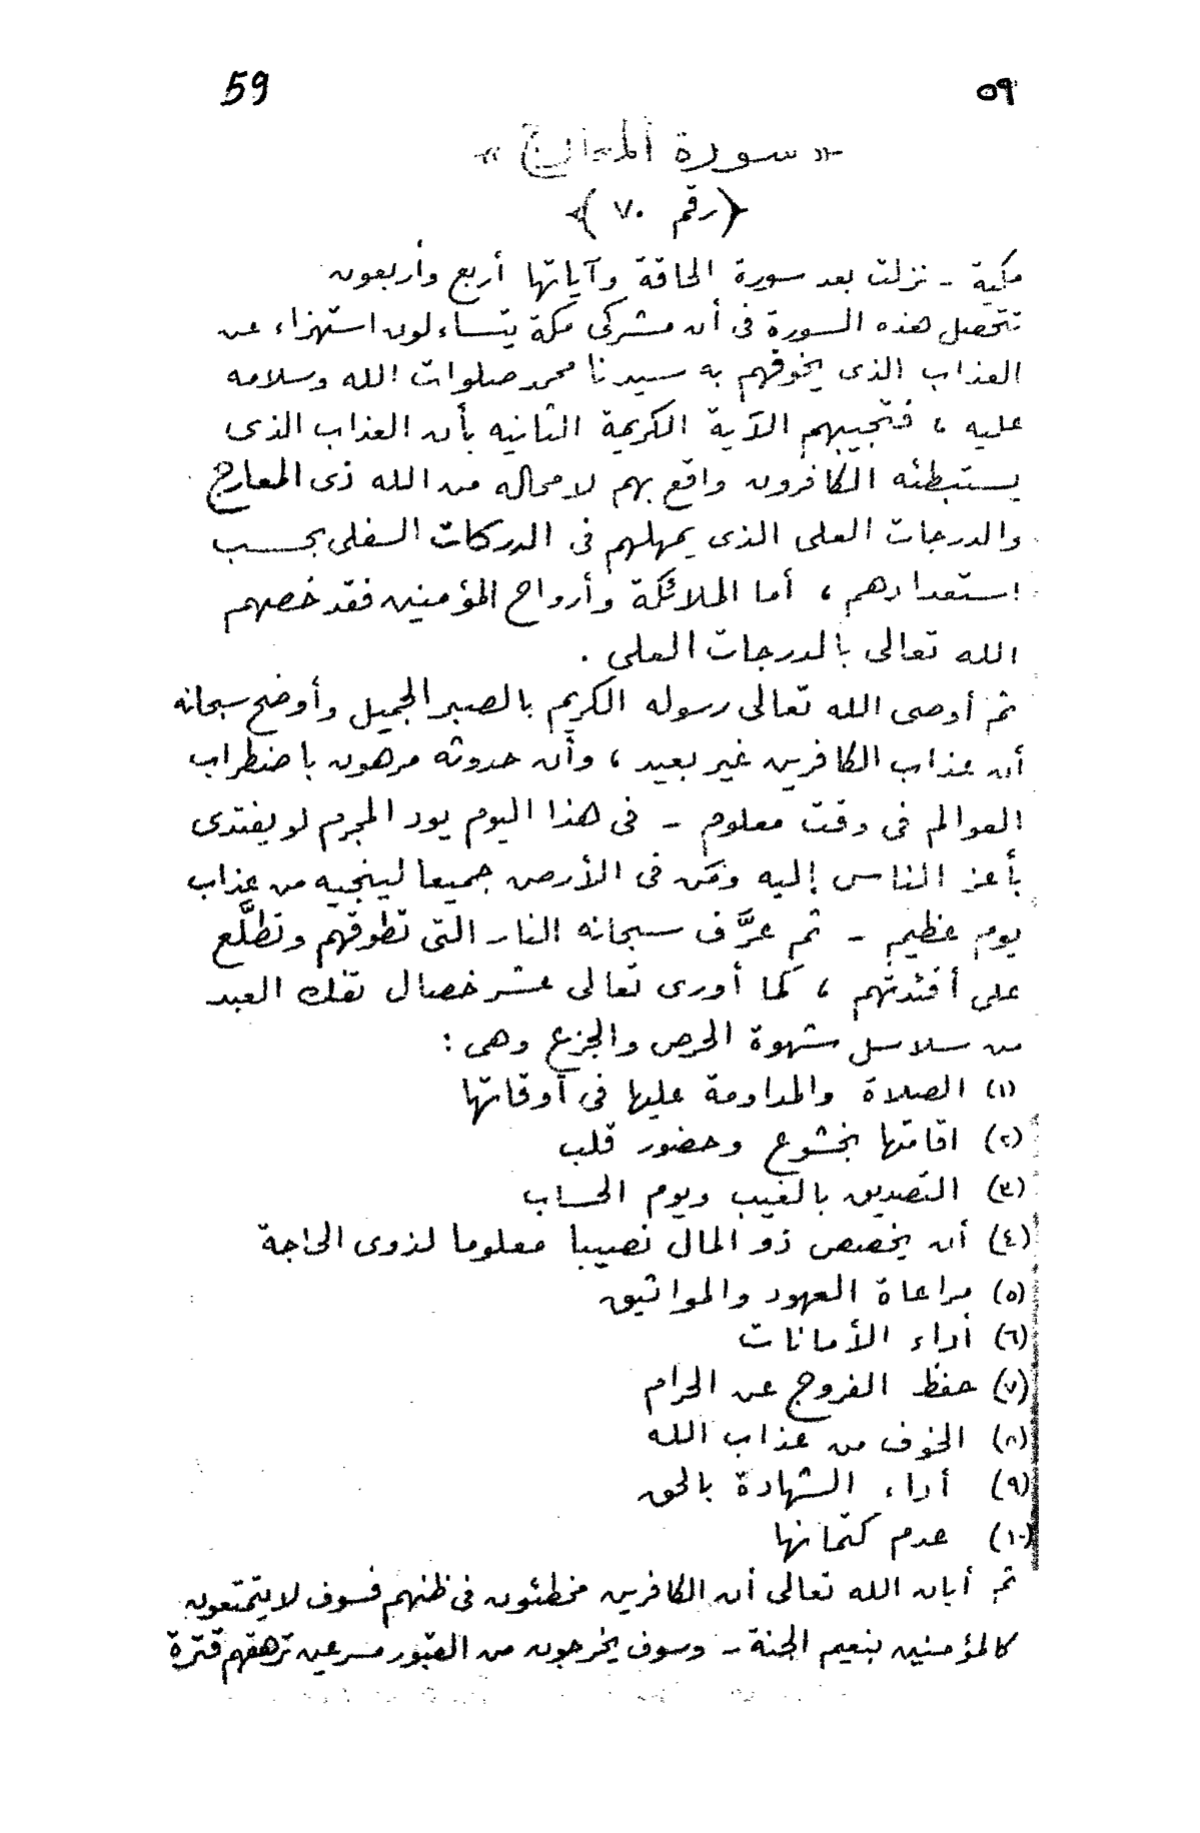 59 ٥٩
« سورة المعارج »
(رقم ٧٠)
مكية - نزلت بعد سورة الحاقة وآياتها أربع وأربعون
تتحصل هذه السورة فى أن مشركى مكة يتساءلون استهزاء عن
العذاب الذى يخوفهم به سيدنا محمد صلوات الله وسلامه
عليه ، فتجيبهم الآية الكريمة الثانيه بأن العذاب الذى
يستبطئه الكافرون واقع بهم لا محاله من الله ذى المعارج
والدرجات العلى الذى يمهلهم فى الدركات السفلى بحسب
استعدادهم ، أما الملائكة وأرواح المؤمنين فقد خصهم
الله تعالى بالدرجات العلى .
ثم أوصى الله تعالى رسوله الكريم بالصبر الجميل وأوضح سبحانه
أن عذاب الكافرين غير بعيد ، وأن حدوثه مرهون باضطراب
العوالم فى وقت معلوم - فى هذا اليوم يود المجرم لو يفتدى
بأعز الناس إليه ومَن فى الأرض جميعا لينجيه من عذاب
يوم عظيم - ثم عرَّف سبحانه النار التى تطوقهم وتطلَّع
على أفئدتهم ، كما أورى تعالى عشر خصال تفك العبد
من سلاسل شهوة الحرص والجزع وهى :
(١) الصلاة والمداومة عليها فى أوقاتها
(٢) اقامتها بخشوع وحضور قلب
(٣) التصديق بالغيب ويوم الحساب
(٤) أن يخصص ذو المال نصيبا معلوما لذوى الحاجة
(٥) مراعاة العهود والمواثيق
(٦) أداء الأمانات
(٧) حفظ الفروج عن الحرام
(٨) الخوف من عذاب الله
(٩) أداء الشهادة بالحق
(١٠) عدم كتمانها
ثم أبان الله تعالى أن الكافرين مخطئون فى ظنهم فسوف لا يتمتعون
كالمؤمنين بنعيم الجنة - وسوف يخرجون من القبور مسرعين ترهقهم قترة